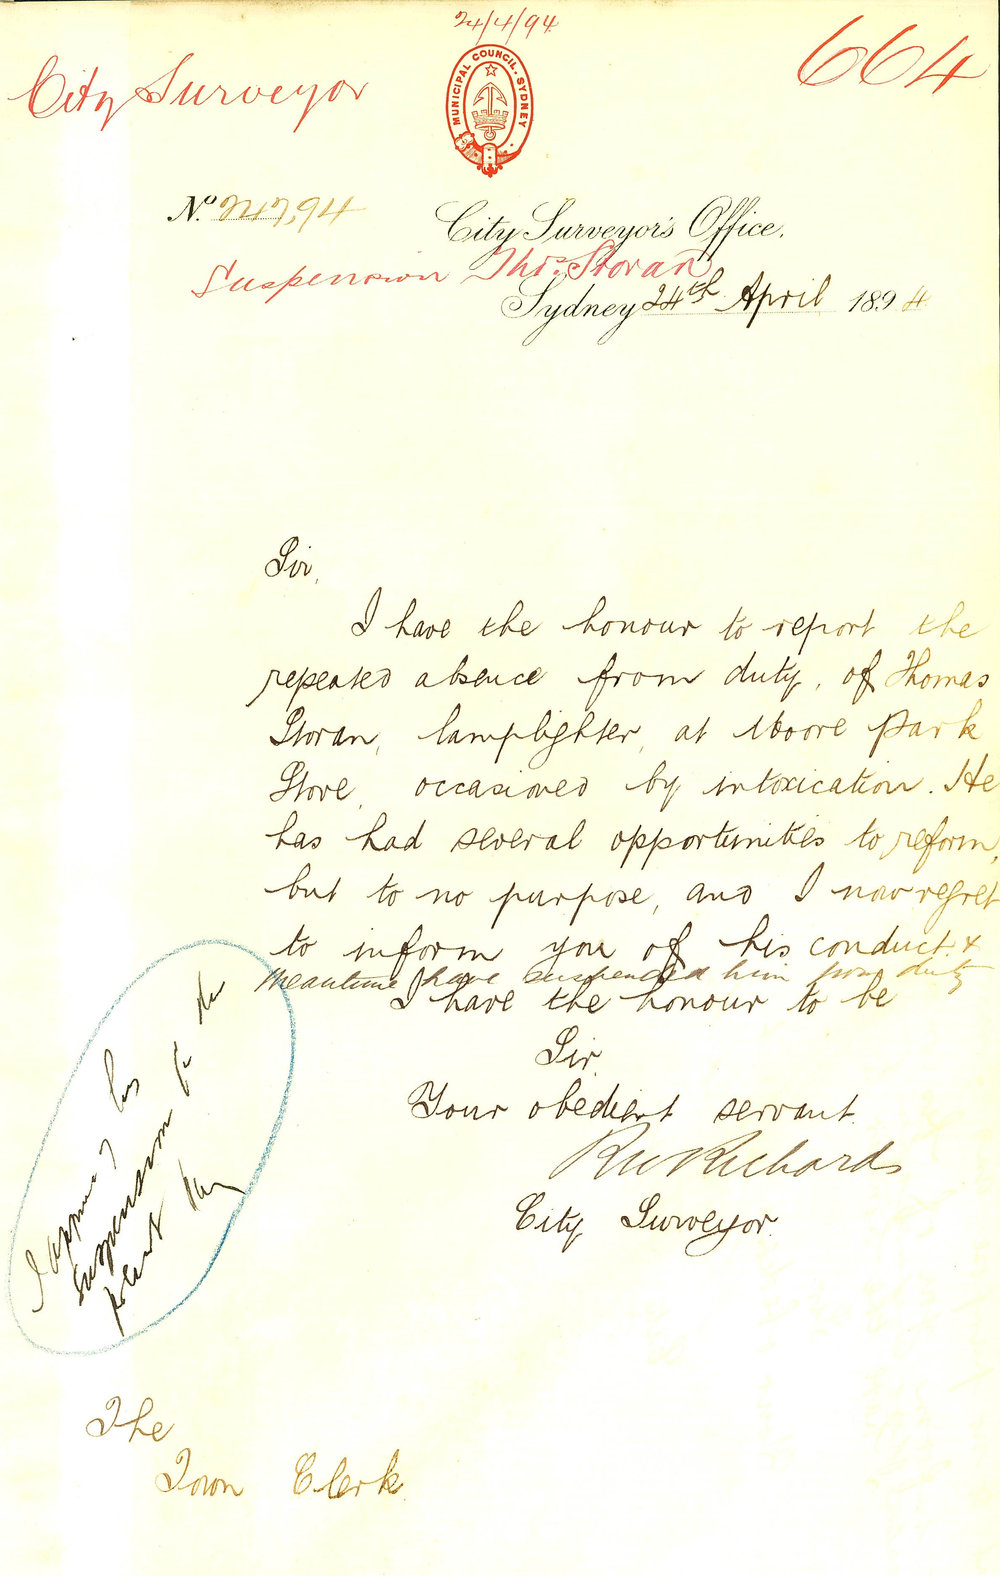 24/4/94
City Surveyor
664
MUNICIPAL COUNCIL. SYDNEY
No. 247,94
City Surveyor's Office.
Suspension Thos. Storan
Sydney 24th April 1894
Sir,
I have the honour to report the
repeated absence from duty, of Thomas
Storan, lamplighter, at Moore Park
Store, occasioned by intoxication. He
has had several opportunities to reform,
but to no purpose, and I now regret
to inform you of his conduct &
meantime have suspended him from duty
I have the honour to be
Sir,
Your obedient servant.
RW Richards
City Surveyor.
I approve of his
suspension for the
present
The
Town Clerk